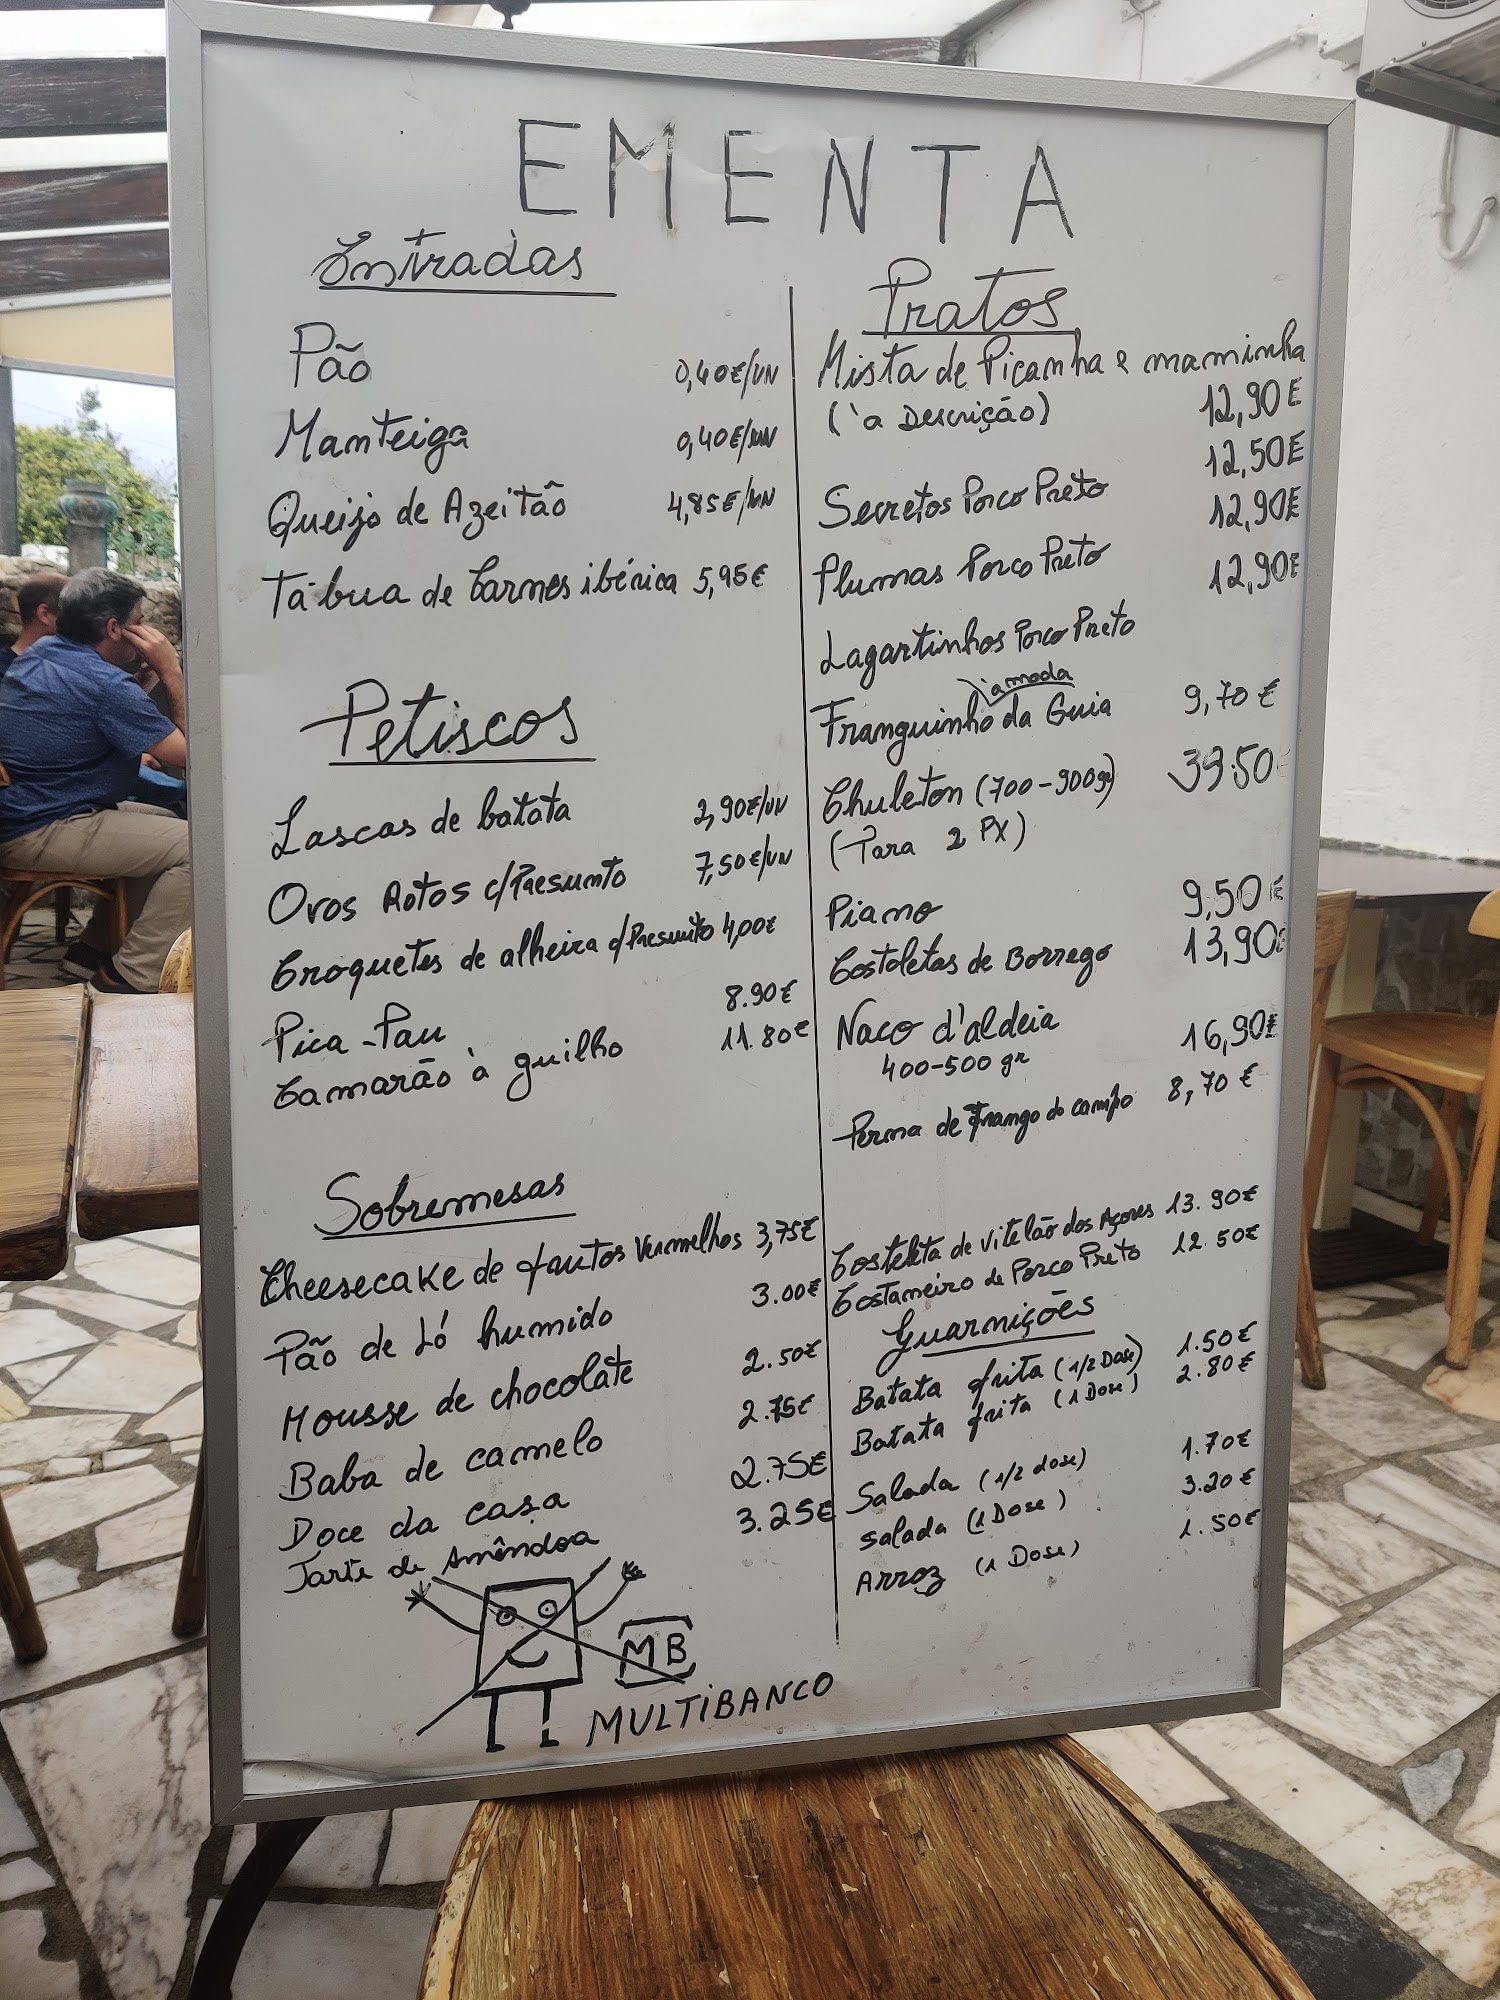 EMENTA
Entradas
Pão 0,40€/UN
Manteiga 0,40€/UN
Queijo de Azeitão 4,85€/UN
Tábua de Carnes ibérica 5,95€
Petiscos
Lascas de batata 2,90€/UN
Ovos Rotos c/Presunto 7,50€/UN
Croquetes de alheira c/Presunto 4,00€
Pica-Pau 8.90€
Camarão à guilho 11.80€
Sobremesas
Cheesecake de frutos Vermelhos 3,75€
Pão de Ló humido 3.00€
Mousse de chocolate 2.50€
Baba de camelo 2.75€
Doce da casa 2.75€
Tarte de Amêndoa 3.25€
MB
MULTIBANCO
Pratos
Mista de Picanha e maminha
(à Descrição) 12,90€
Secretos Porco Preto 12,50€
Plumas Porco Preto 12,90€
Lagartinhos Porco Preto 12,90€
à moda
Franguinho da Guia 9,70€
Chuleton (700-900gr) 39.50
(Para 2 PX)
Piano 9,50€
Costoletas de Borrego 13,90€
Naco d'aldeia 16,90€
400-500 gr
Perna de frango do campo 8,70€
Costeleta de Vitelão dos Açores 13.90€
Costaneiro de Porco Preto 12.50€
Guarnições
Batata frita (1/2 Dose) 1.50€
Batata frita (1 Dose) 2.80€
Salada (1/2 dose) 1.70€
Salada (1 Dose) 3.20€
Arroz (1 Dose) 1.50€